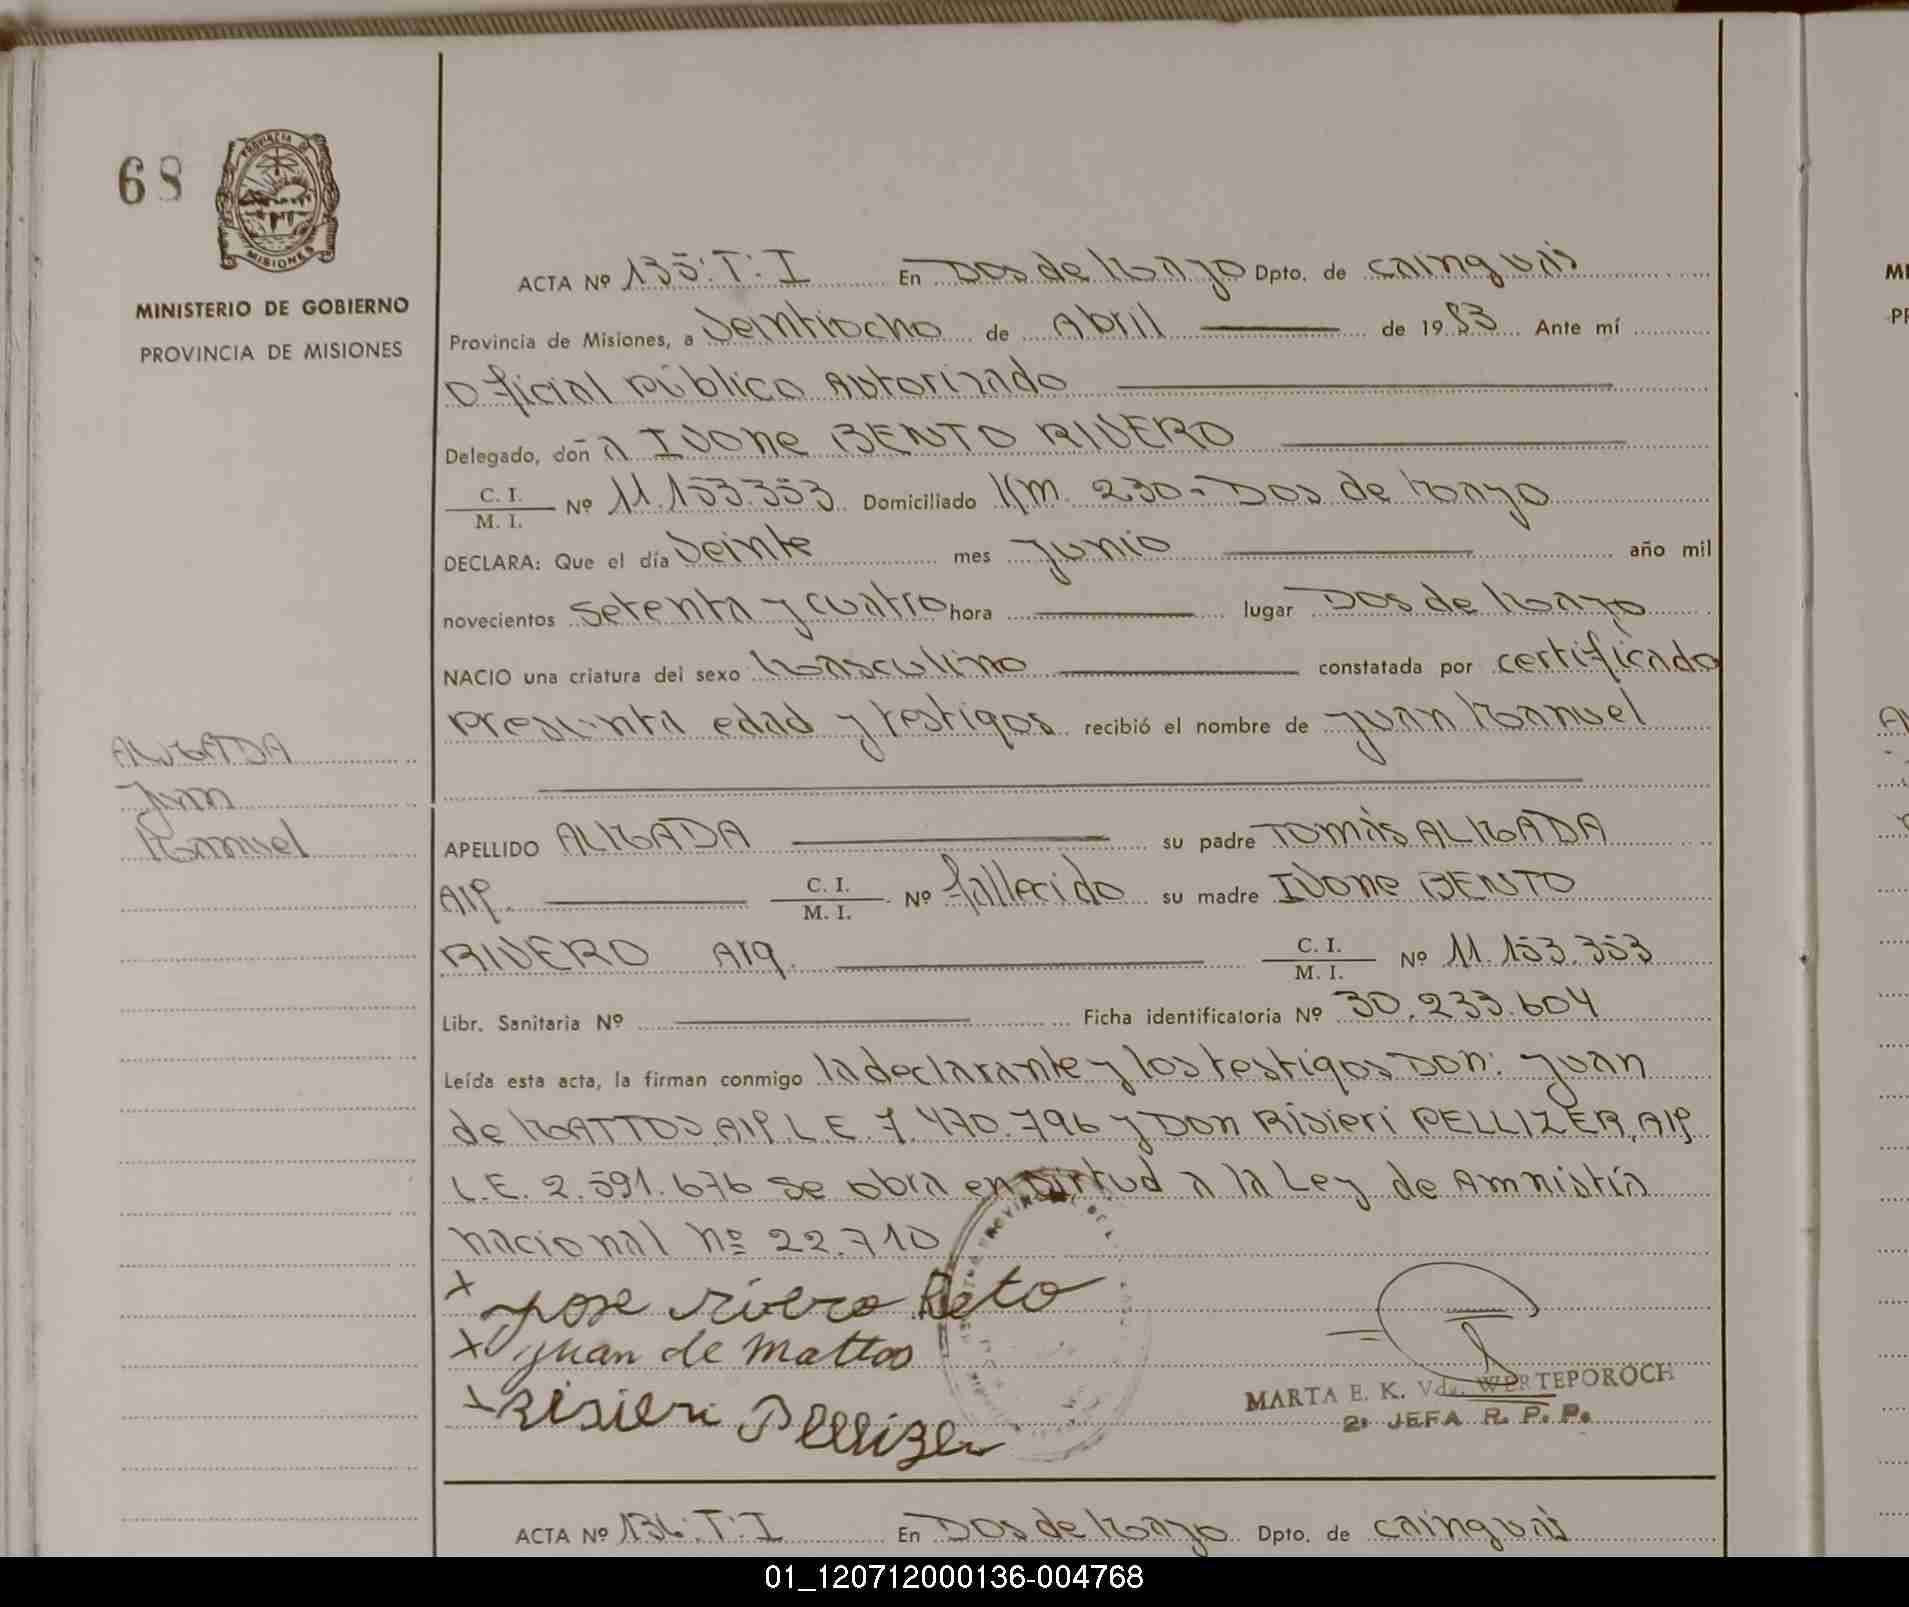 68
PROVINCIA DE
MISIONES
MINISTERIO DE GOBIERNO
PROVINCIA DE MISIONES
ACTA Nº 135: T: I En Dos de Mayo Dpto. de Cainguás
Provincia de Misiones, a Veintiocho de Abril de 1983 Ante mí
Oficial Público Autorizado
Delegado, doña Ivone BENTO RIVERO
C. I. / M. I. Nº 11.153.353 Domiciliado Km. 230 - Dos de Mayo
DECLARA: Que el día Veinte mes Junio año mil
novecientos setenta y cuatro hora lugar Dos de Mayo
NACIO una criatura del sexo Masculino constatada por certificado
presunta edad y testigos recibió el nombre de Juan Manuel
ALMADA
Juan
Manuel
APELLIDO ALMADA su padre Tomás ALMADA
Arg. C. I. / M. I. Nº fallecido su madre Ivone BENTO
RIVERO Arg. C. I. / M. I. Nº 11.153.353
Libr. Sanitaria Nº Ficha identificatoria Nº 30.233.604
Leída esta acta, la firman conmigo la declarante y los testigos Don: Juan
de MATTOS, Arg. L.E. 7.470.796 y Don Risieri PELLIZER, Arg
L.E. 2.591.676 se obra en virtud a la Ley de Amnistía
nacional nº 22.710
x Rivero Beto
x Juan de Mattos
x Risieri Pellizer
MARTA E. K. Vda. WERTEPOROCH
2ª JEFA R. P. P.
ACTA Nº 136: T: I En Dos de Mayo Dpto. de Cainguás
01_120712000136-004768